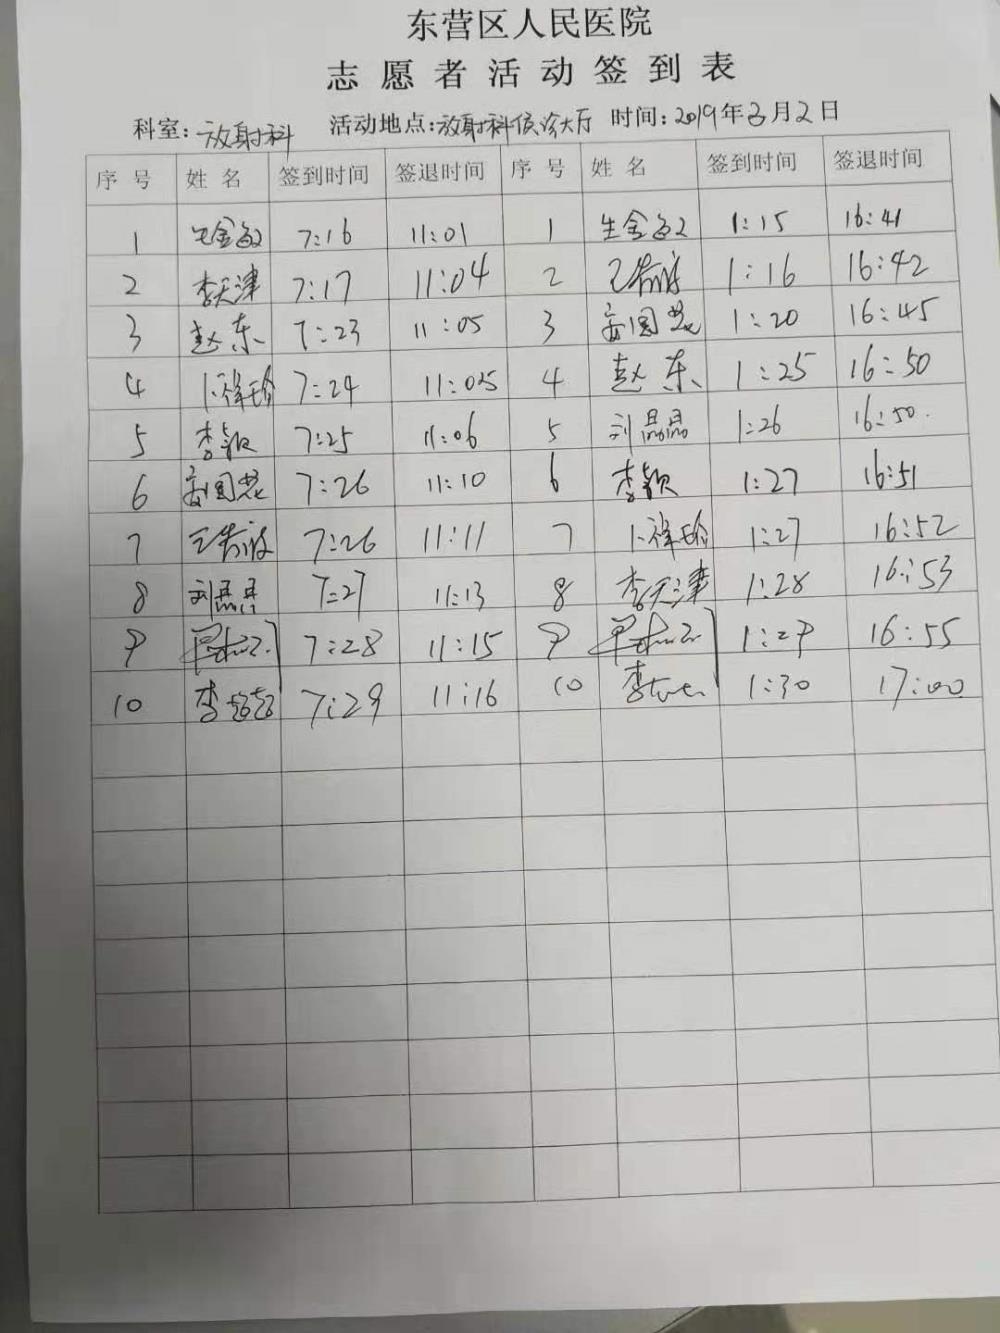 东营区人民医院
志愿者活动签到表
科室：放射科 活动地点：放射科候诊大厅 时间：2019年3月2日
序号 姓名 签到时间 签退时间 序号 姓名 签到时间 签退时间
1 7:16 11:01 1 1:15 16:41
2 李天津 7:17 11:04 2 1:16 16:42
3 赵东 7:23 11:05 3 1:20 16:45
4 7:24 11:025 4 赵东 1:25 16:50
5 李颖 7:25 11:06 5 刘晶晶 1:26 16:50.
6 7:26 11:10 6 李颖 1:27 16:51
7 7:26 11:11 7 1:27 16:52
8 刘晶晶 7:27 11:13 8 李天津 1:28 16:53
9 7:28 11:15 9 1:29 16:55
10 李超超 7:29 11:16 10 1:30 17:00